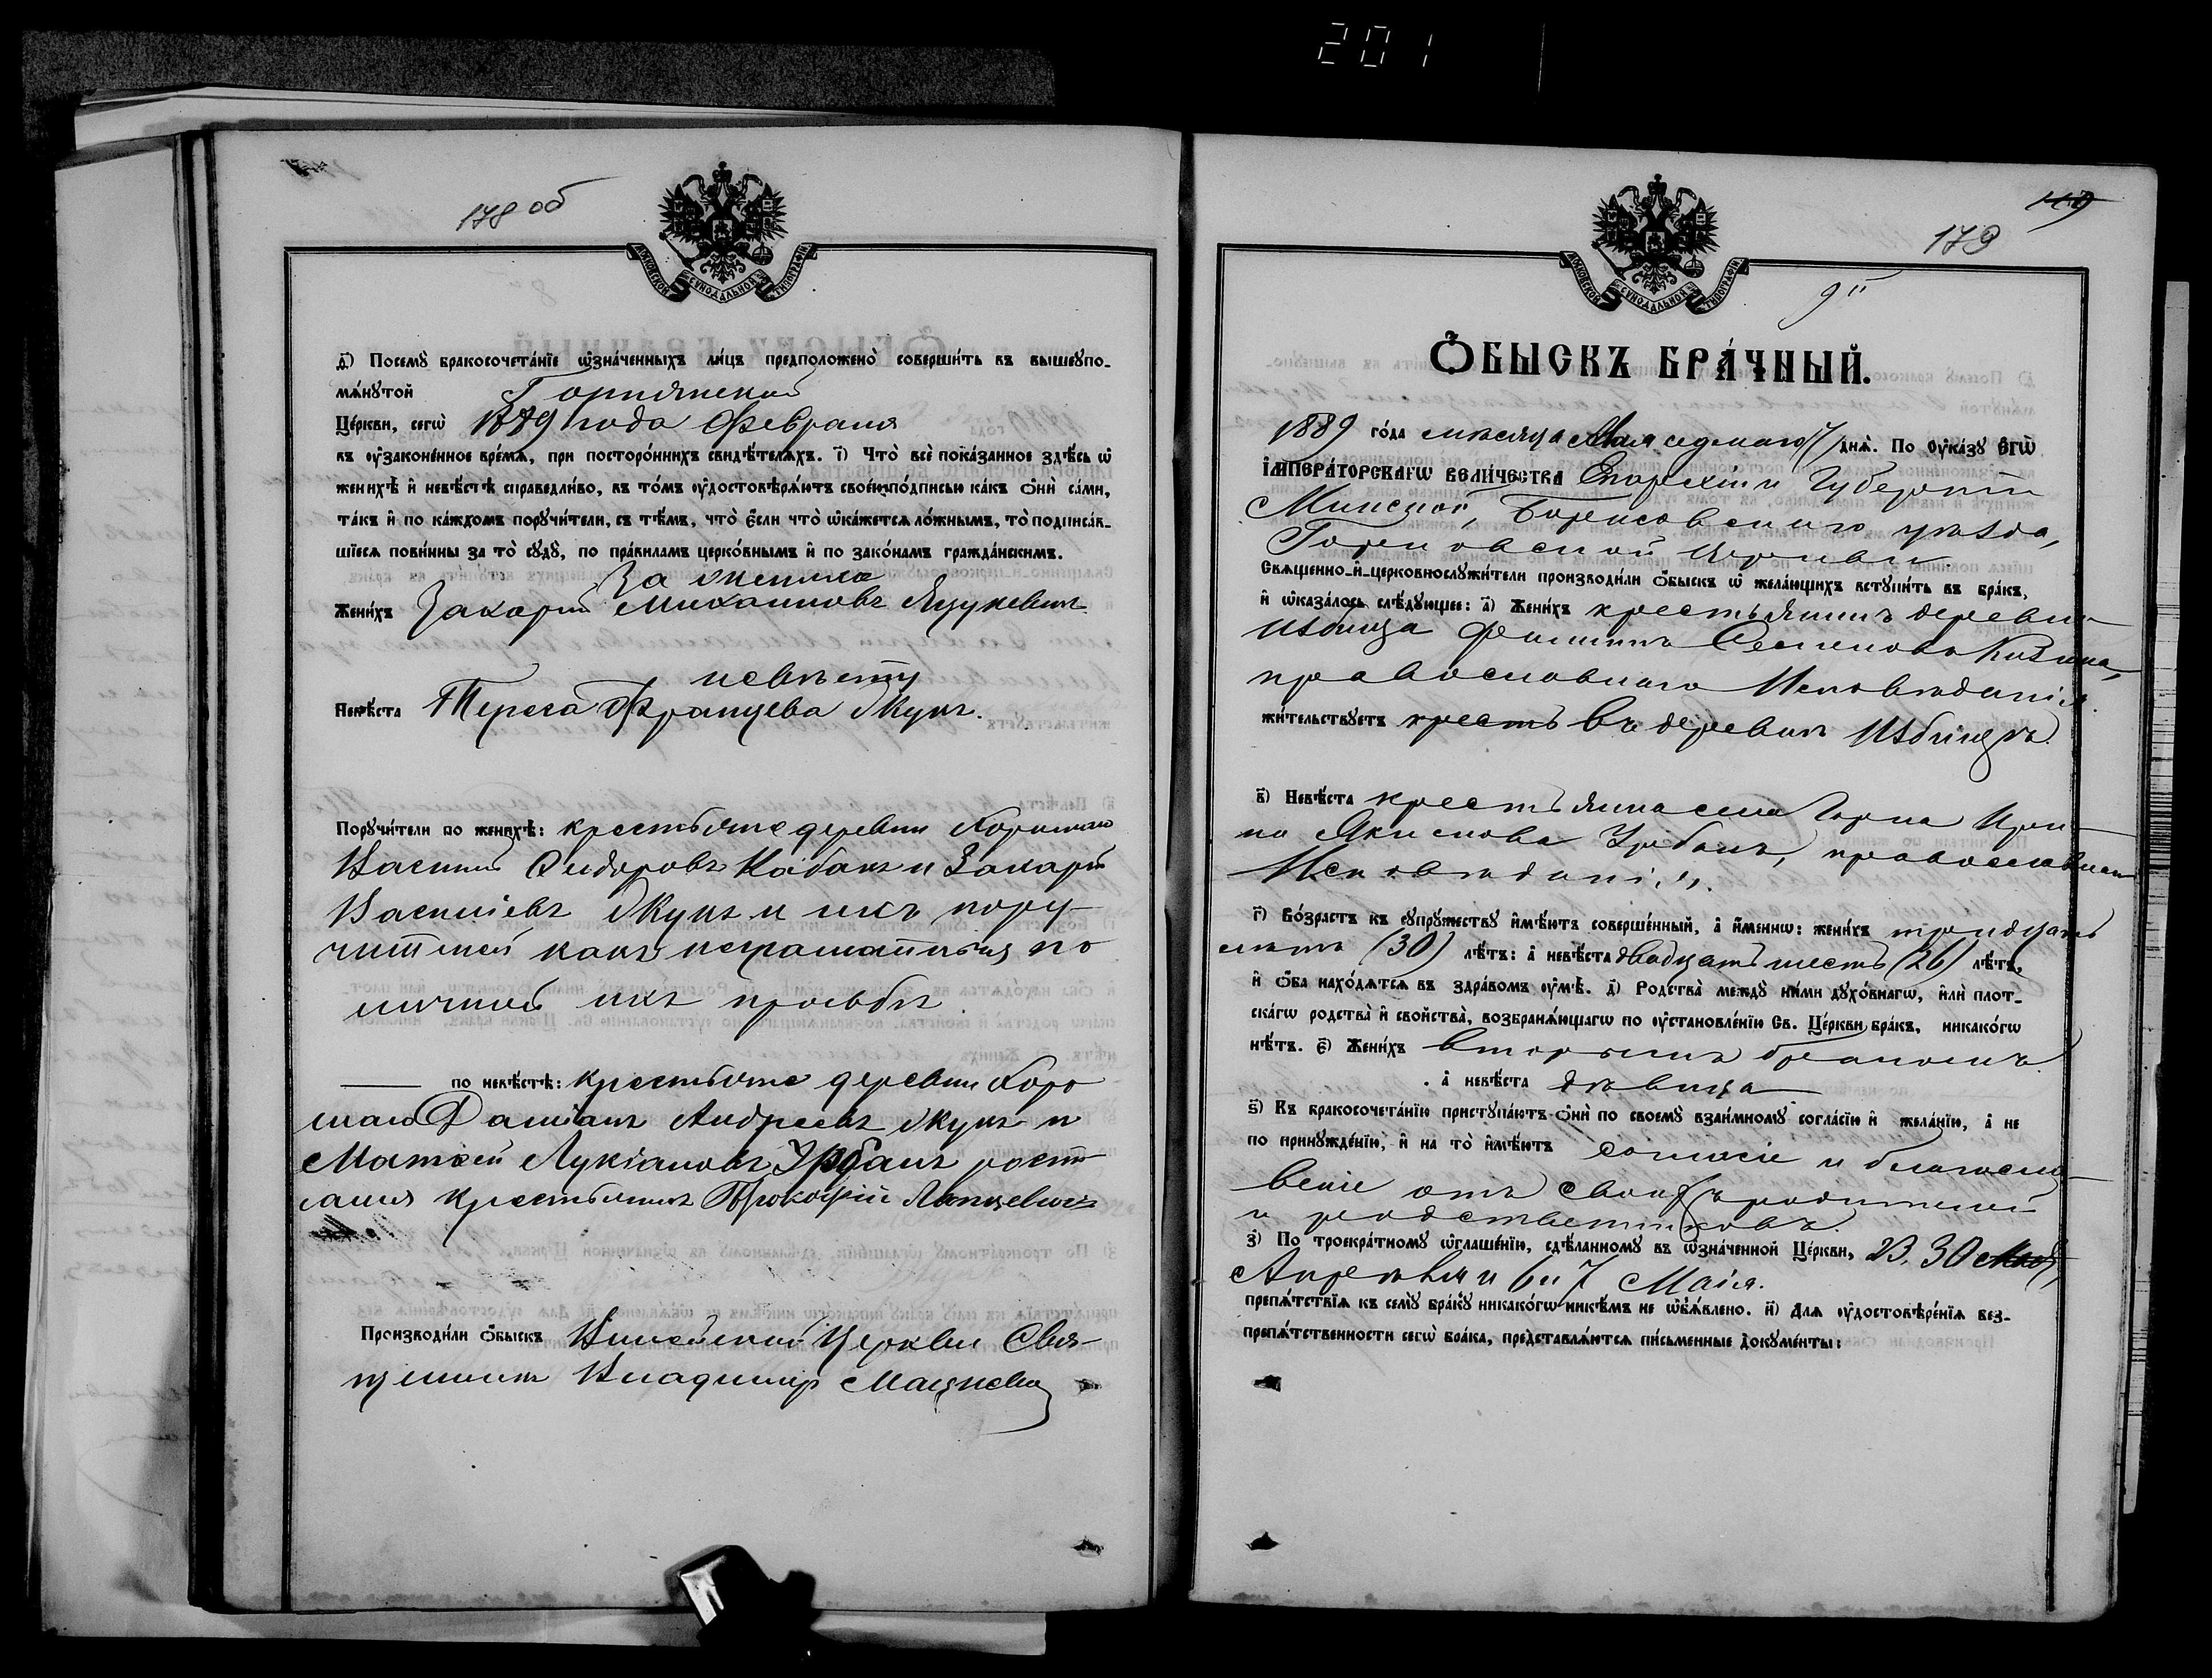 201
178 об
МОСКОВСКОЙ СѴНОДАЛЬНОЙ ТИПОГРАФІИ
д҃) Посемꙋ бракосочета́нїе ѡ҆зна́ченныхъ ли́цъ предположено̀ соверши́ть въ вышеꙋпо-
мѧ́нꙋтой Горнянской
Це́ркви, сегѡ̀ 1889 года Февраля
въ ᲂу҆зако́ненное вре́мѧ, при посторо́ннихъ свидѣ́телѧхъ. і҃) Что̀ всѐ пока́занное здѣ́сь ѡ҆
женихѣ̀ и҆ невѣ́стѣ справедли́во, въ то́мъ ᲂу҆достовѣрѧ́ютъ свое́ю по́дписью ка́къ ѻ҆нѝ са́ми,
та́къ и҆ по ка́ждомъ порꙋчи́тели, съ тѣ́мъ, что̀ є҆́сли что̀ ѡ҆ка́жетсѧ ло́жнымъ, то̀ подписа́в-
шїесѧ пови́нны за то̀ сꙋдꙋ̀, по пра́виламъ церко́внымъ и҆ по зако́намъ гражда́нскимъ.
За жениха
Жени́хъ Захарій Михаиловъ Яцукевичъ
невѣсту
Невѣ́ста Тереса Францева Жукъ.
Порꙋчи́тели по женихѣ̀: крестьяне деревни
Василій Сидоровъ Кабакъ и Захарій
Васильевъ Жукъ и ихъ пору-
чителей какъ неграматныхъ по
личной ихъ просьбѣ
по невѣ́стѣ: крестьяне деревни Хоро
Даміанъ Андреевъ Жукъ и
Матѳей Лукіановъ Урбанъ
крестьянинъ Прокофій
Производи́ли ѻ҆́быскъ Церкви Свя-
щенникъ Владиміръ
179
9й
МОСКОВСКОЙ СѴНОДАЛЬНОЙ ТИПОГРАФІИ
Ѻ҆БЫСКЪ БРА́ЧНЫЙ.
1889 го́да месяца Мая седмаго 7 днѧ̀. По ᲂу҆ка́зꙋ Є҆ГѠ̀
І҆МПЕРА́ТОРСКАГѠ ВЕЛИ́ЧЕСТВА Епархіи и Губерніи
Минской, Борисовскаго уѣзда,
Горновской церкви.
Свѧще́нно-и҆-церковнослꙋжи́тели производи́ли ѻ҆́быскъ ѡ҆ жела́ющихъ встꙋпи́ть въ бра́къ,
и҆ ѡ҆каза́лось слѣ́дꙋющее: а҃) Жени́хъ крестьянинъ деревни
Избища Филипъ Семеновъ
православнаго Исповѣданія.
жи́тельствꙋетъ крест въ деревнѣ Избищѣ.
в҃) Невѣ́ста крестьянка села Горна Ири-
на Якимова Урбанъ, православнаго
Исповѣданія.
г҃) Во́зрастъ къ сꙋпрꙋ́жествꙋ и҆мѣ́ютъ соверше́нный, а҆ и҆́меннѡ: жени́хъ тридцать
лѣтъ (30) лѣ́тъ: а҆ невѣ́ста двадцать шесть (26) лѣ́тъ,
и҆ ѻ҆́ба нахо́дѧтсѧ въ здра́вомъ ᲂу҆мѣ̀. д҃) Родства̀ междꙋ̀ ни́ми дꙋхо́внагѡ, и҆лѝ пло́т-
скагѡ родства̀ и҆ сво́йства, возбранѧ́ющагѡ по ᲂу҆становле́нїю Св. Це́ркви бра́къ, никако́гѡ
нѣ́тъ. є҃) Жени́хъ вторымъ бракомъ
а҆ невѣ́ста дѣвица
ѕ҃) Къ бракосочета́нїю пристꙋпа́ютъ ѻ҆нѝ по своемꙋ̀ взаи́мномꙋ согла́сїю и҆ жела́нїю, а҆ не
по принꙋжде́нїю, и҆ на то̀ и҆мѣ́ютъ согласіе и благосло-
веніе отъ своихъ родителей
и родственниковъ.
з҃) По троекра́тномꙋ ѡ҆глаше́нїю, сдѣ́ланномꙋ въ ѡ҆зна́ченной Це́ркви, 23, 30
Апрѣля и 6 и 7 Маія.
препѧ́тствїѧ къ семꙋ̀ бра́кꙋ никако́гѡ никѣ́мъ не ѡ҆б̾ѧ́влено. и҃) Длѧ ᲂу҆достовѣре́нїѧ без-
препѧ́тственности сегѡ̀ бра́ка, представлѧ́ютсѧ пи́сьменные докꙋме́нты: